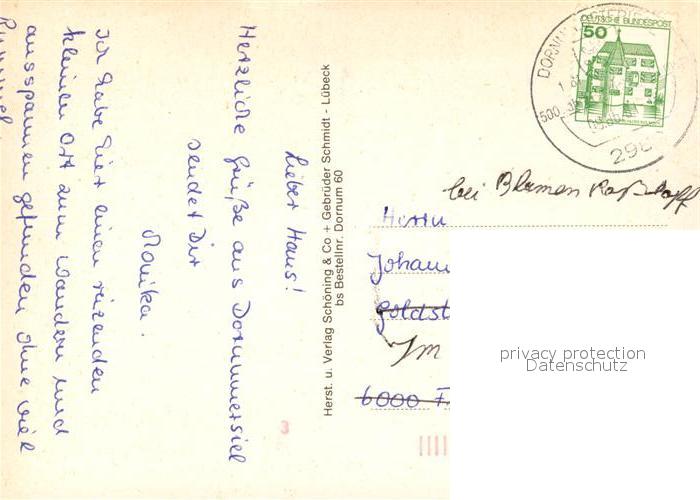 Lieber Hans!
Herzliche Grüße aus Dornumersiel
sendet Dir
Monika.
Ich habe hier einen reizenden
kleinen Ort zum Wandern und
ausspannen gefunden ohne viel
Rummel.
Herst. u. Verlag Schöning & Co + Gebrüder Schmidt - Lübeck
bs Bestellnr. Dornum 60
DEUTSCHE BUNDESPOST
50
DORNUM
500 Jahre
298
bei Blumen
Herrn
Johann
Goldst
Im
6000 F
3
privacy protection
Datenschutz